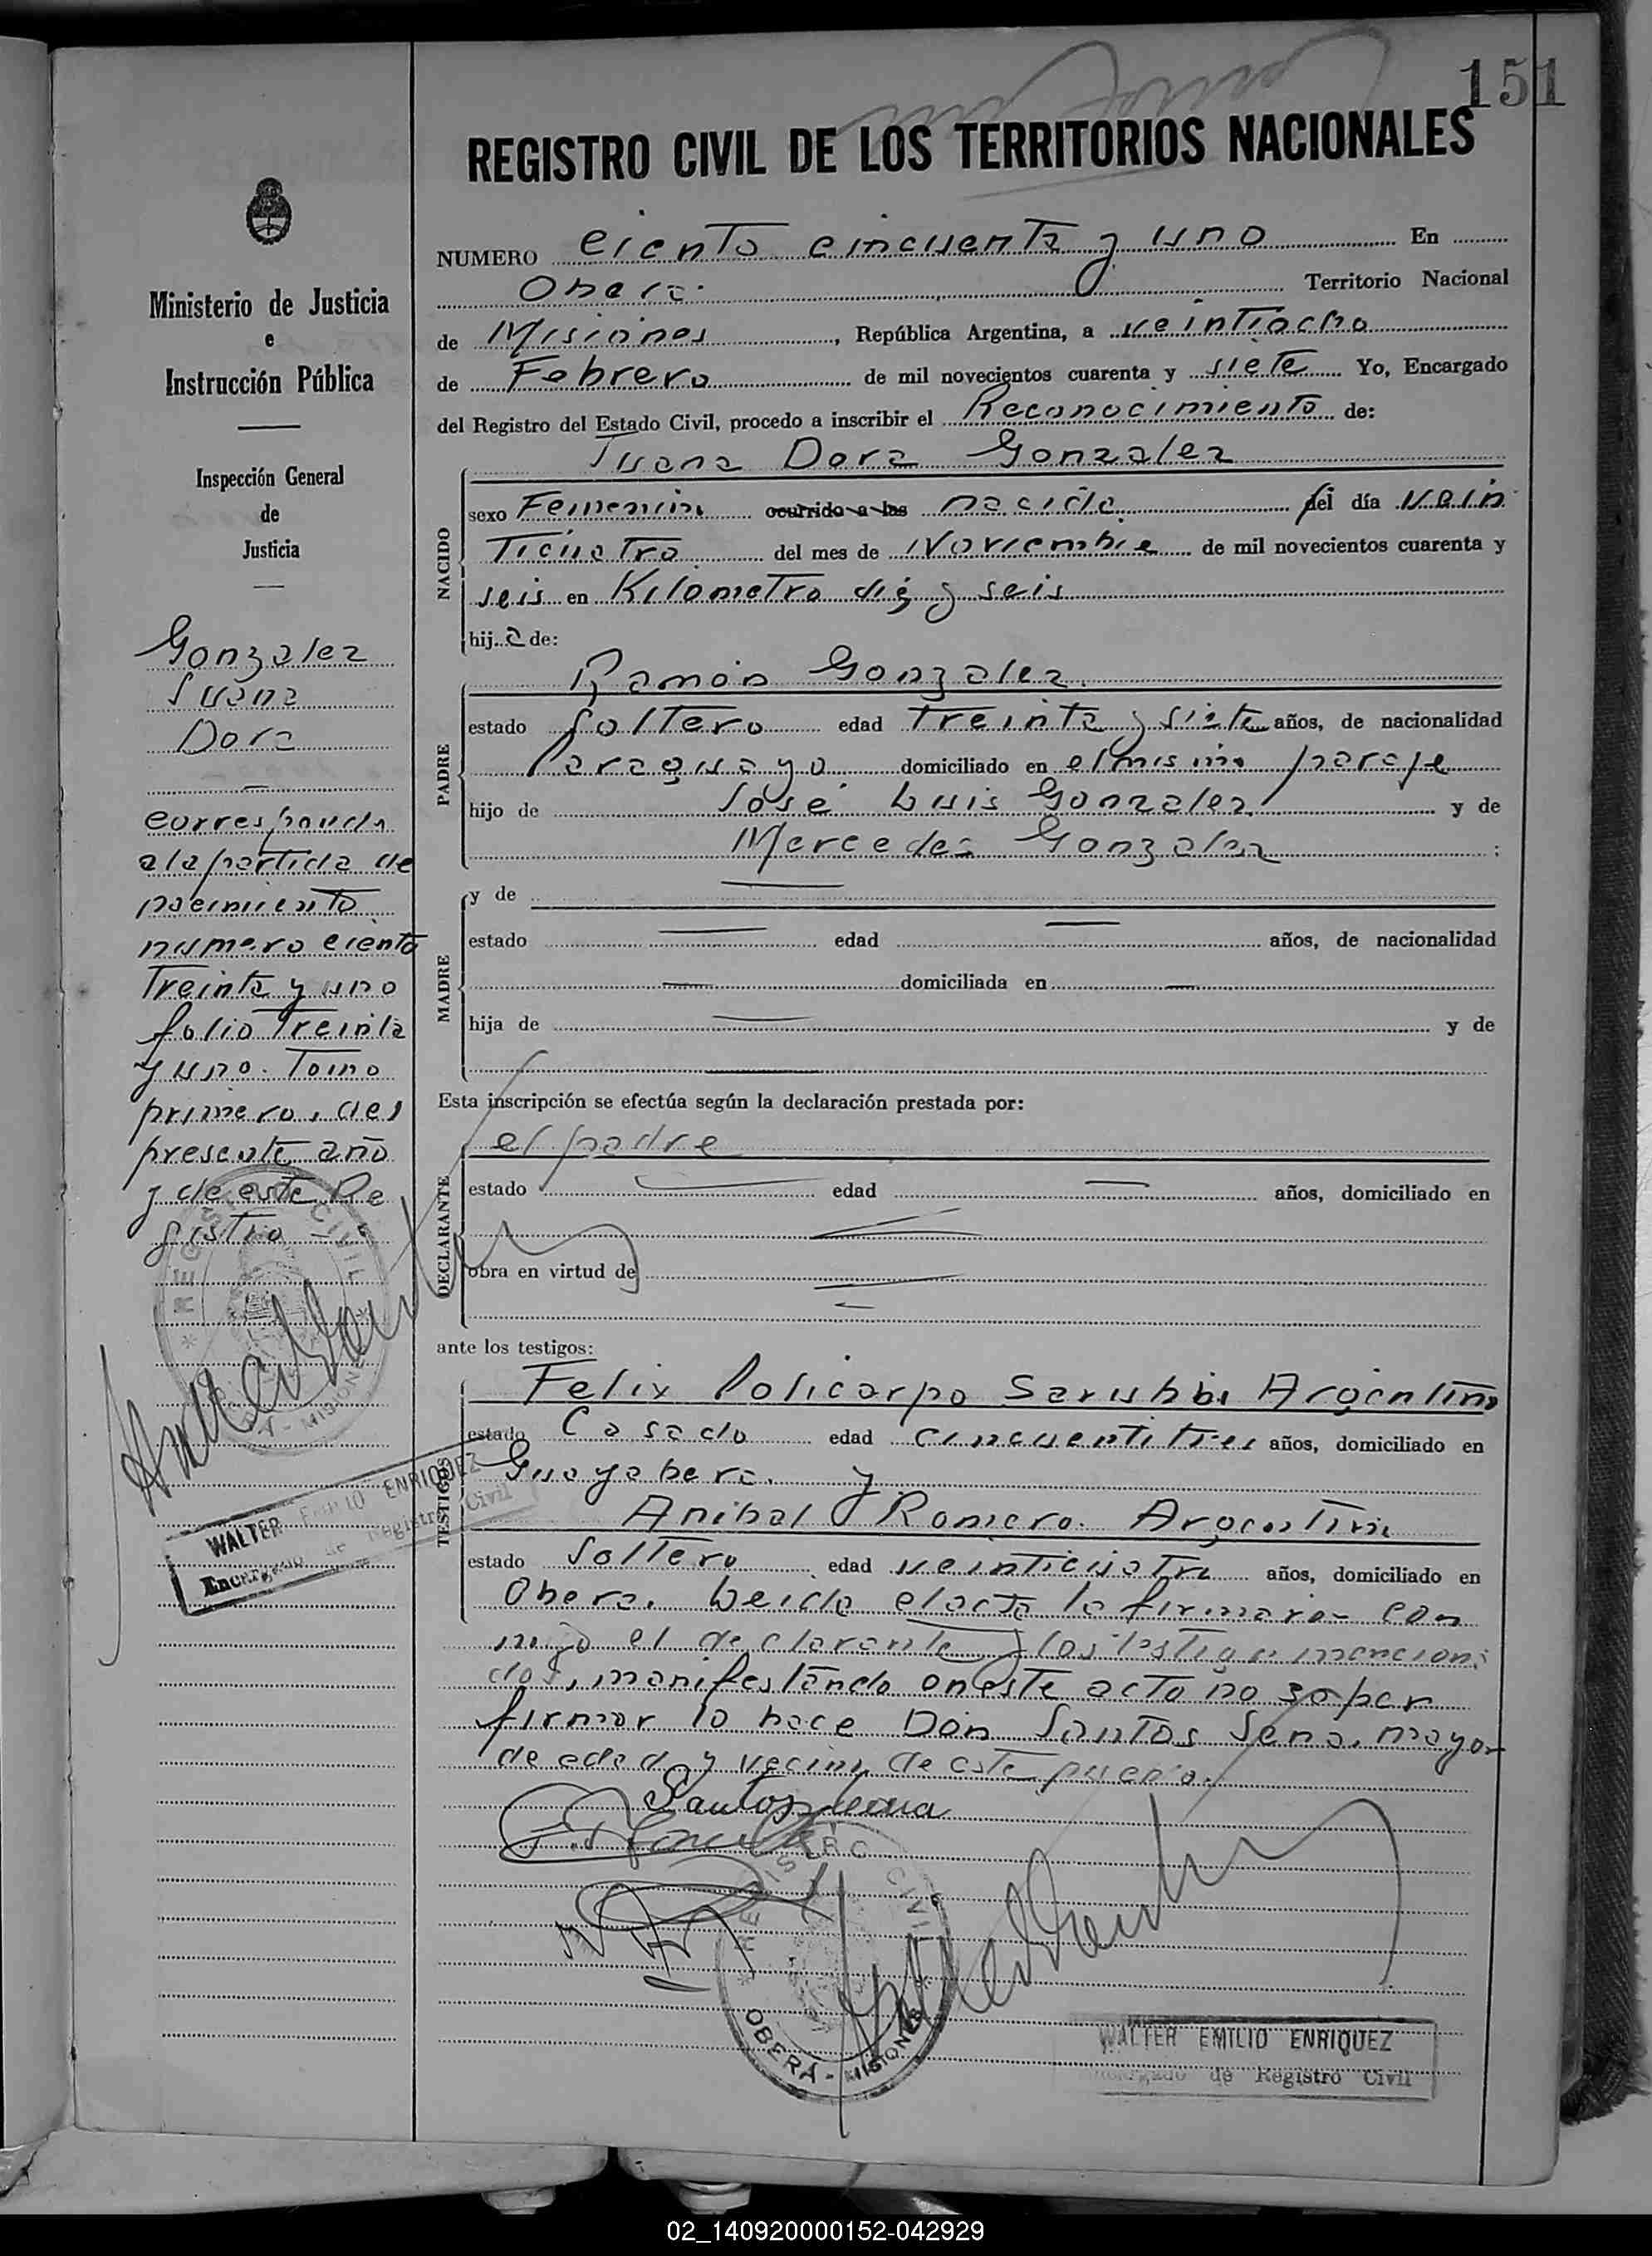 151
REGISTRO CIVIL DE LOS TERRITORIOS NACIONALES
NUMERO ciento cincuenta y uno En
Obera. Territorio Nacional
de Misiones, República Argentina, a veintiocho
de Febrero de mil novecientos cuarenta y siete Yo, Encargado
del Registro del Estado Civil, procedo a inscribir el Reconocimiento de:
Juana Dora Gonzalez
NACIDO
sexo Femenino ocurrido a las nacida el día vein
ticuatro del mes de Noviembre de mil novecientos cuarenta y
seis en Kilometro diez y seis
hija de:
PADRE
Ramón Gonzalez.
estado soltero edad treinta y siete años, de nacionalidad
Paraguayo domiciliado en el mismo paraje
hijo de José Luis Gonzalez y de
Mercedes Gonzalez ;
MADRE
y de
estado edad años, de nacionalidad
domiciliada en
hija de y de
Esta inscripción se efectúa según la declaración prestada por:
DECLARANTE
el padre
estado edad años, domiciliado en
obra en virtud de
ante los testigos:
TESTIGOS
Felix Policarpo Sarubbi Argentino
estado Casado edad cincuentitres años, domiciliado en
Guayabera. y
Anibal Romero. Argentino
estado Soltero edad veinticuatro años, domiciliado en
Obera. Leida el acta la firmaron con
migo el declarante y los testigos menciona
dos, manifestando en este acto no saber
firmar lo hace Don Santos Sena, mayor
de edad y vecino de este pueblo.
Santos Sena
REGISTRO CIVIL
OBERÁ - MISIONES
WALTER EMILIO ENRIQUEZ
Encargado de Registro Civil
Ministerio de Justicia
e
Instrucción Pública
Inspección General
de
Justicia
Gonzalez
Juana
Dora
corresponde
a la partida de
nacimiento
numero ciento
treinta y uno
folio treinta
y uno. Tomo
primero, del
presente año
y de este Re
gistro
REGISTRO CIVIL
OBERÁ - MISIONES
WALTER EMILIO ENRIQUEZ
Encargado de Registro Civil
02_140920000152-042929